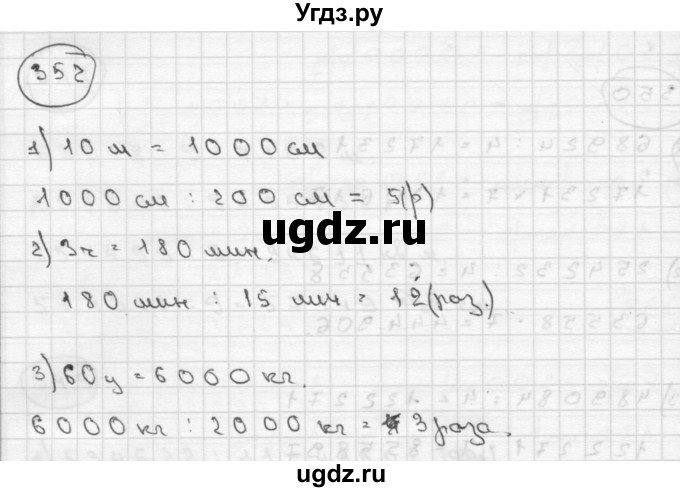 Угдз.ру
352
1) 10 м = 1000 см
1000 см : 200 см = 5(р)
ugdz.ru
2) 3ч = 180 мин.
180 мин : 15 мин = 12(раз.)
3) 60ц = 6000 кг.
6000 кг : 2000 кг = 3 раза.
ugdz.ru